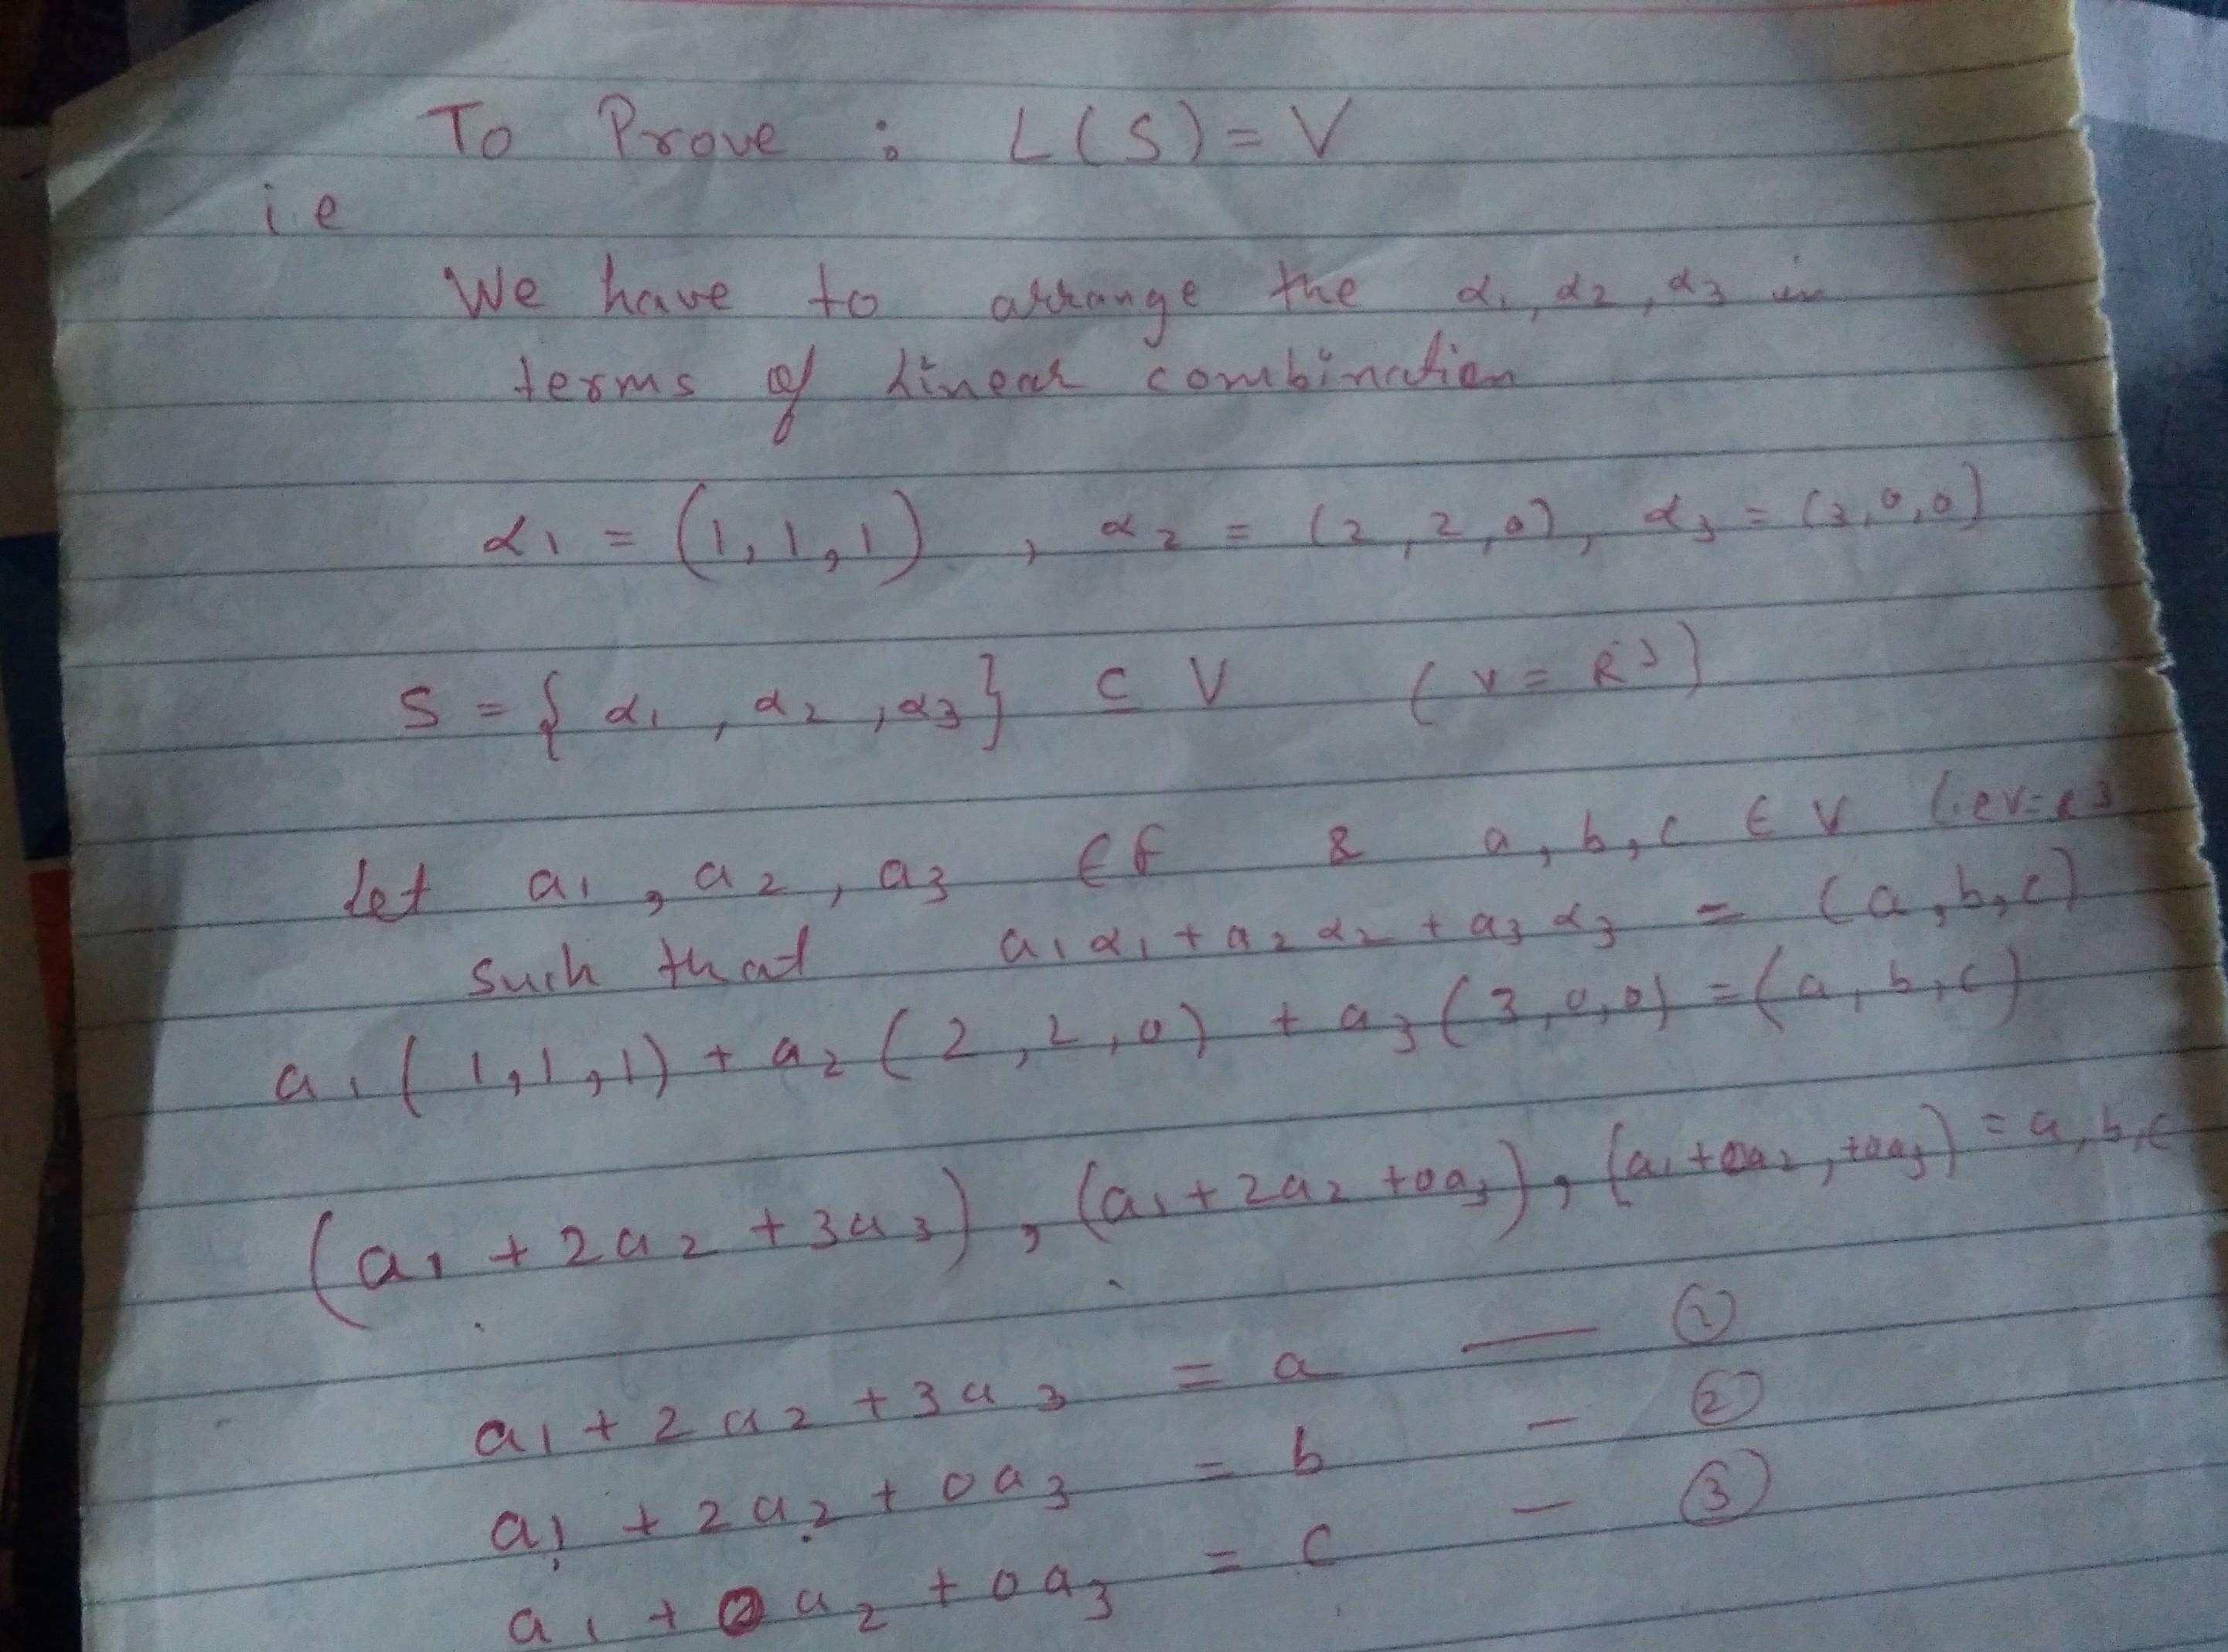 To Prove : L(S) = V
i.e
We have to arrange the α1, α2, α3 in
terms of Linear combination
α1 = (1, 1, 1) , α2 = (2, 2, 0), α3 = (3, 0, 0)
S = { α1 , α2 , α3 } ⊆ V ( V = R3 )
Let a1 , a2 , a3 ∈ F & a, b, c ∈ V (i.e V=R3
Such that a1 α1 + a2 α2 + a3 α3 = (a, b, c)
a1 ( 1, 1, 1) + a2 ( 2, 2, 0) + a3 ( 3, 0, 0) = (a, b, c)
(a1 + 2a2 + 3a3) , (a1 + 2a2 + 0a3) , (a1 + 0a2, + 0a3) = a, b, c
a1 + 2a2 + 3a3 = a — ①
a1 + 2a2 + 0a3 = b — ②
a1 + 0a2 + 0a3 = c — ③